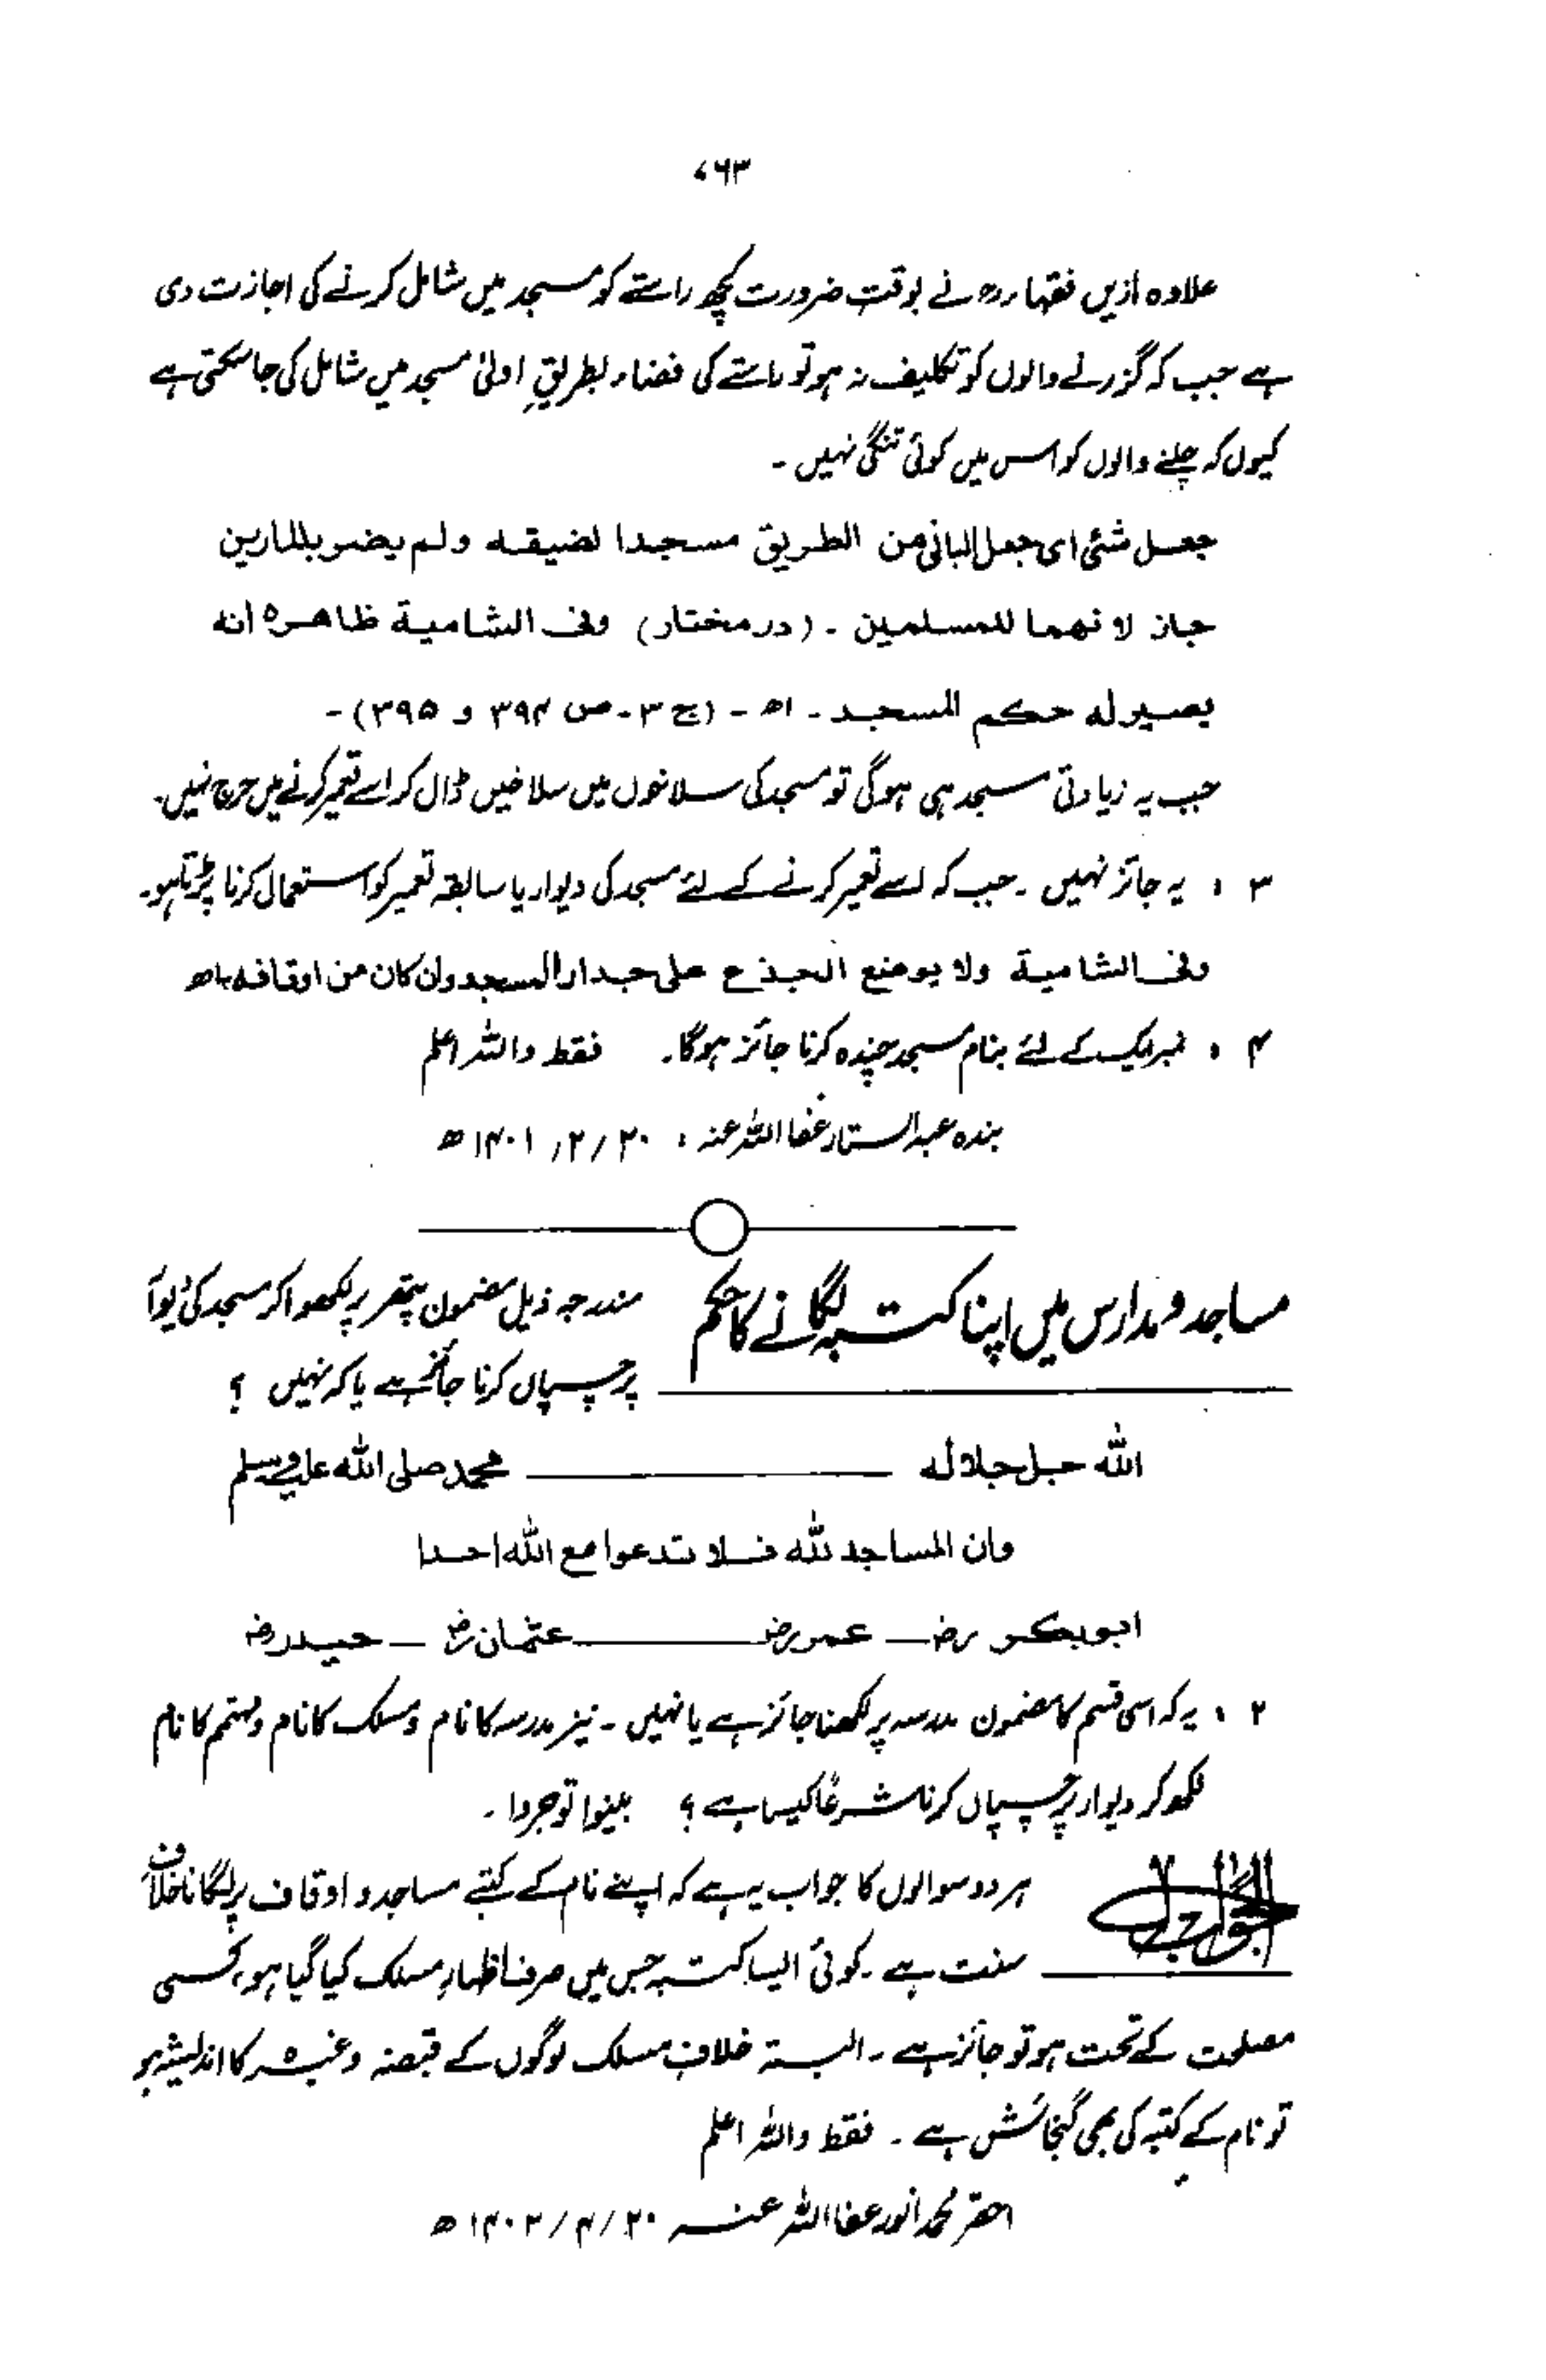 ۷۶۳
علاوہ ازیں فقہاءرح نے بوقتِ ضرورت کچھ راستے کو مسجد میں شامل کرنے کی اجازت دی
ہے جب کہ گزرنے والوں کو تکلیف نہ ہو تو راستے کی فضاء بطریقِ اولیٰ مسجد میں شامل کی جاسکتی ہے
کیوں کہ چلنے والوں کو اس میں کوئی تنگی نہیں ۔
جعل شئی ای جعل البانی من الطریق مسجدا لضیقہ ولم یضر بالمارین
جاز لانھما للمسلمین ۔ (درمختار) وفی الشامیة ظاھرہ انه
یصیر له حکم المسجد ۔ اھ ۔ (ج ۳ ۔ ص ۳۹۴ و ۳۹۵) ۔
جب یہ زیادتی مسجد ہی ہوگی تو مسجد کی سلاخوں میں سلاخیں ڈال کر اسے تعمیر کرنے میں حرج نہیں۔
۳ : یہ جائز نہیں ۔ جب کہ اسے تعمیر کرنے کے لئے مسجد کی دیوار یا سابقہ تعمیر کو استعمال کرنا پڑتا ہو۔
وفی الشامیة ولا یوضع الجذع علی جدار المسجد وان کان من اوقافه اھ
۴ : نمبر ایک کے لئے بنام مسجد چندہ کرنا جائز ہوگا۔ فقط واللہ اعلم
بندہ عبدالستار عفا اللہ عنہ : ۲۰ / ۲ / ۱۴۰۱ ھ
مساجد و مدارس میں اپنا کتبہ لگانے کا حکم مندرجہ ذیل مضمون پتھر پر لکھوا کر مسجد کی دیوار
پر چسپاں کرنا جائز ہے یا کہ نہیں ؟
اللہ جل جلالہ ـــــــ محمد صلی اللہ علیہ وسلم
وان المساجد للہ فلا تدعوا مع اللہ احدا
ابوبکر رض ـــ عمر رض ـــــــ عثمان رض ـــ حیدر رض
۲ : یہ کہ اسی قسم کا مضمون مدرسہ پر لکھنا جائز ہے یا نہیں ۔ نیز مدرسہ کا نام و مسلک کا نام و مہتمم کا نام
لکھ کر دیوار پر چسپاں کرنا شرعًا کیسا ہے ؟ بینوا توجروا ۔
الجواب ہر دو سوالوں کا جواب یہ ہے کہ اپنے نام کے کتبے مساجد و اوقاف پر لگانا خلاف
سنت ہے ۔ کوئی ایسا کتبہ جس میں صرف اظہارِ مسلک کیا گیا ہو، کسی
مصلحت کے تحت ہو تو جائز ہے ۔ البتہ خلافِ مسلک لوگوں کے قبضہ وغیرہ کا اندیشہ ہو
تو نام کے کتبہ کی بھی گنجائش ہے ۔ فقط واللہ اعلم
احقر محمد انور عفا اللہ عنہ ۲۰ / ۴ / ۱۴۰۲ ھ